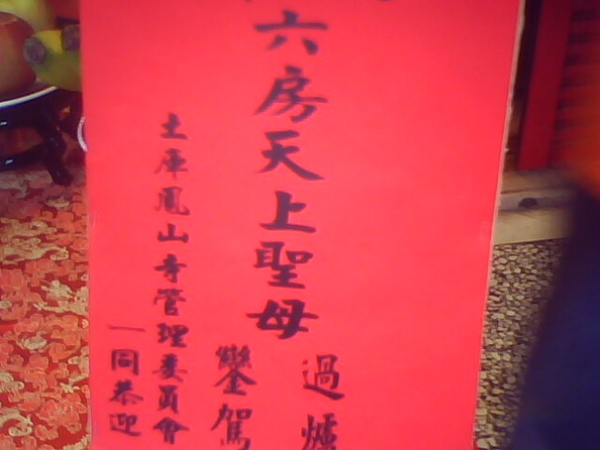 六房天上聖母
過爐
鑾駕
土庫鳳山寺管理委員會
一同恭迎